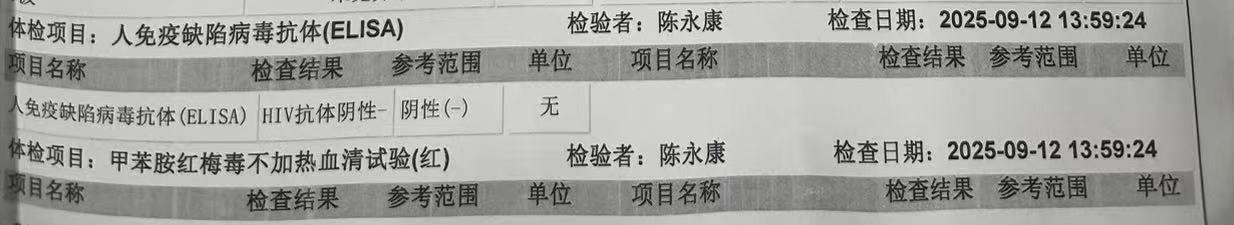 体检项目：人免疫缺陷病毒抗体(ELISA) 检验者：陈永康 检查日期：2025-09-12 13:59:24
项目名称 检查结果 参考范围 单位 项目名称 检查结果 参考范围 单位
人免疫缺陷病毒抗体(ELISA) HIV抗体阴性- 阴性(-) 无
体检项目：甲苯胺红梅毒不加热血清试验(红) 检验者：陈永康 检查日期：2025-09-12 13:59:24
项目名称 检查结果 参考范围 单位 项目名称 检查结果 参考范围 单位